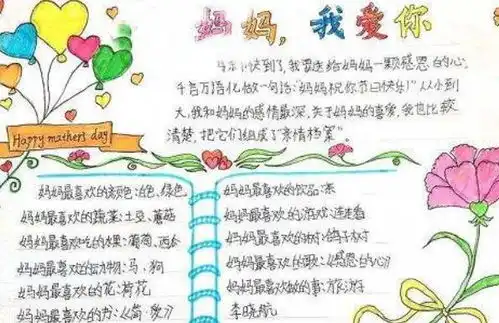 妈妈,我爱你
快到了,我要送给妈妈一颗感恩的心,
千言万语化做一句话:"妈妈祝你节日快乐!"从小到
大,我和妈妈的感情最深,关于妈妈的喜爱,我也比较
清楚,把它们组成了"亲情档案"
Happy mothers day
妈妈最喜欢的颜色:白色,绿色
妈妈最喜欢的蔬菜:土豆、蘑菇
妈妈最喜欢吃的水果:葡萄、西瓜
妈妈最喜欢的动物:马,狗
妈妈最喜欢的花:荷花
妈妈最喜欢的书:《简·爱》
妈妈最喜欢的饮品:茶
妈妈最喜欢的游戏:连连看
妈妈最喜欢的树:鸽子树
妈妈最喜欢的歌:《感恩的心》
妈妈最喜欢做的事:旅游
李晓航